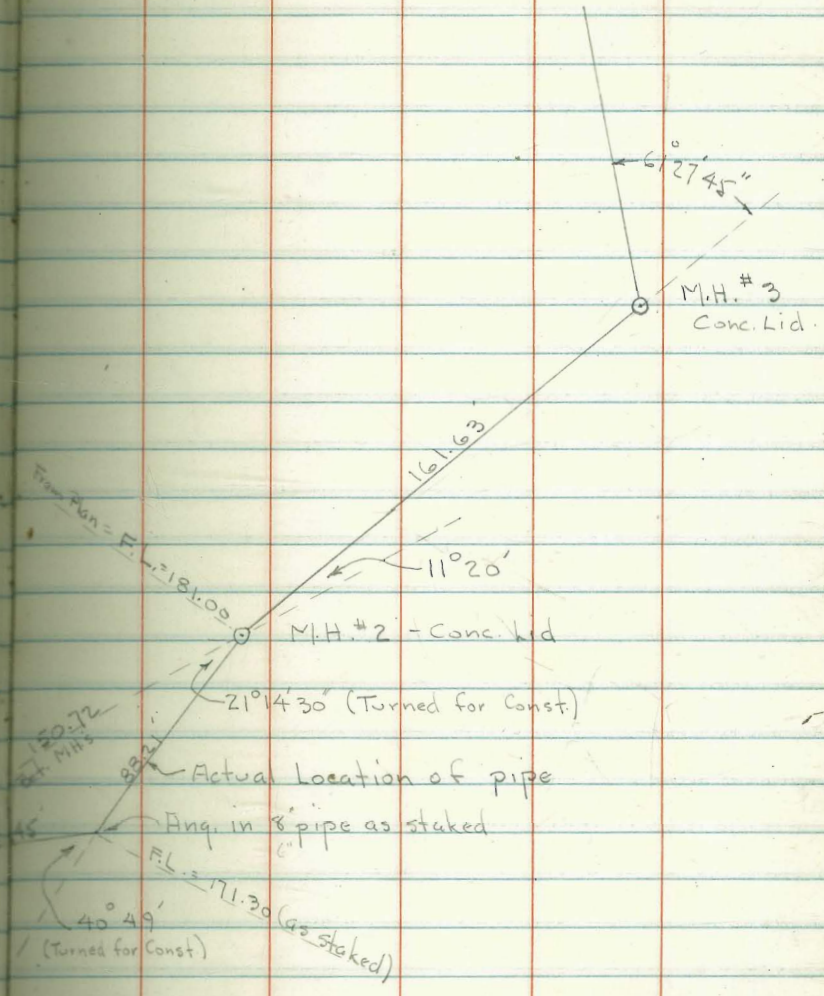 61°27'45"
M.H. #3
Conc. Lid.
161.63'
From Plan = F.L. = 181.00
11°20'
M.H. #2 - Conc. Lid
21°14'30" (Turned for Const.)
150.72
Bt. MH's
88.21'
Actual Location of pipe
Ang. in 8" pipe as staked
6"
45'
F.L. = 171.30 (as staked)
40°49'
(Turned for Const.)